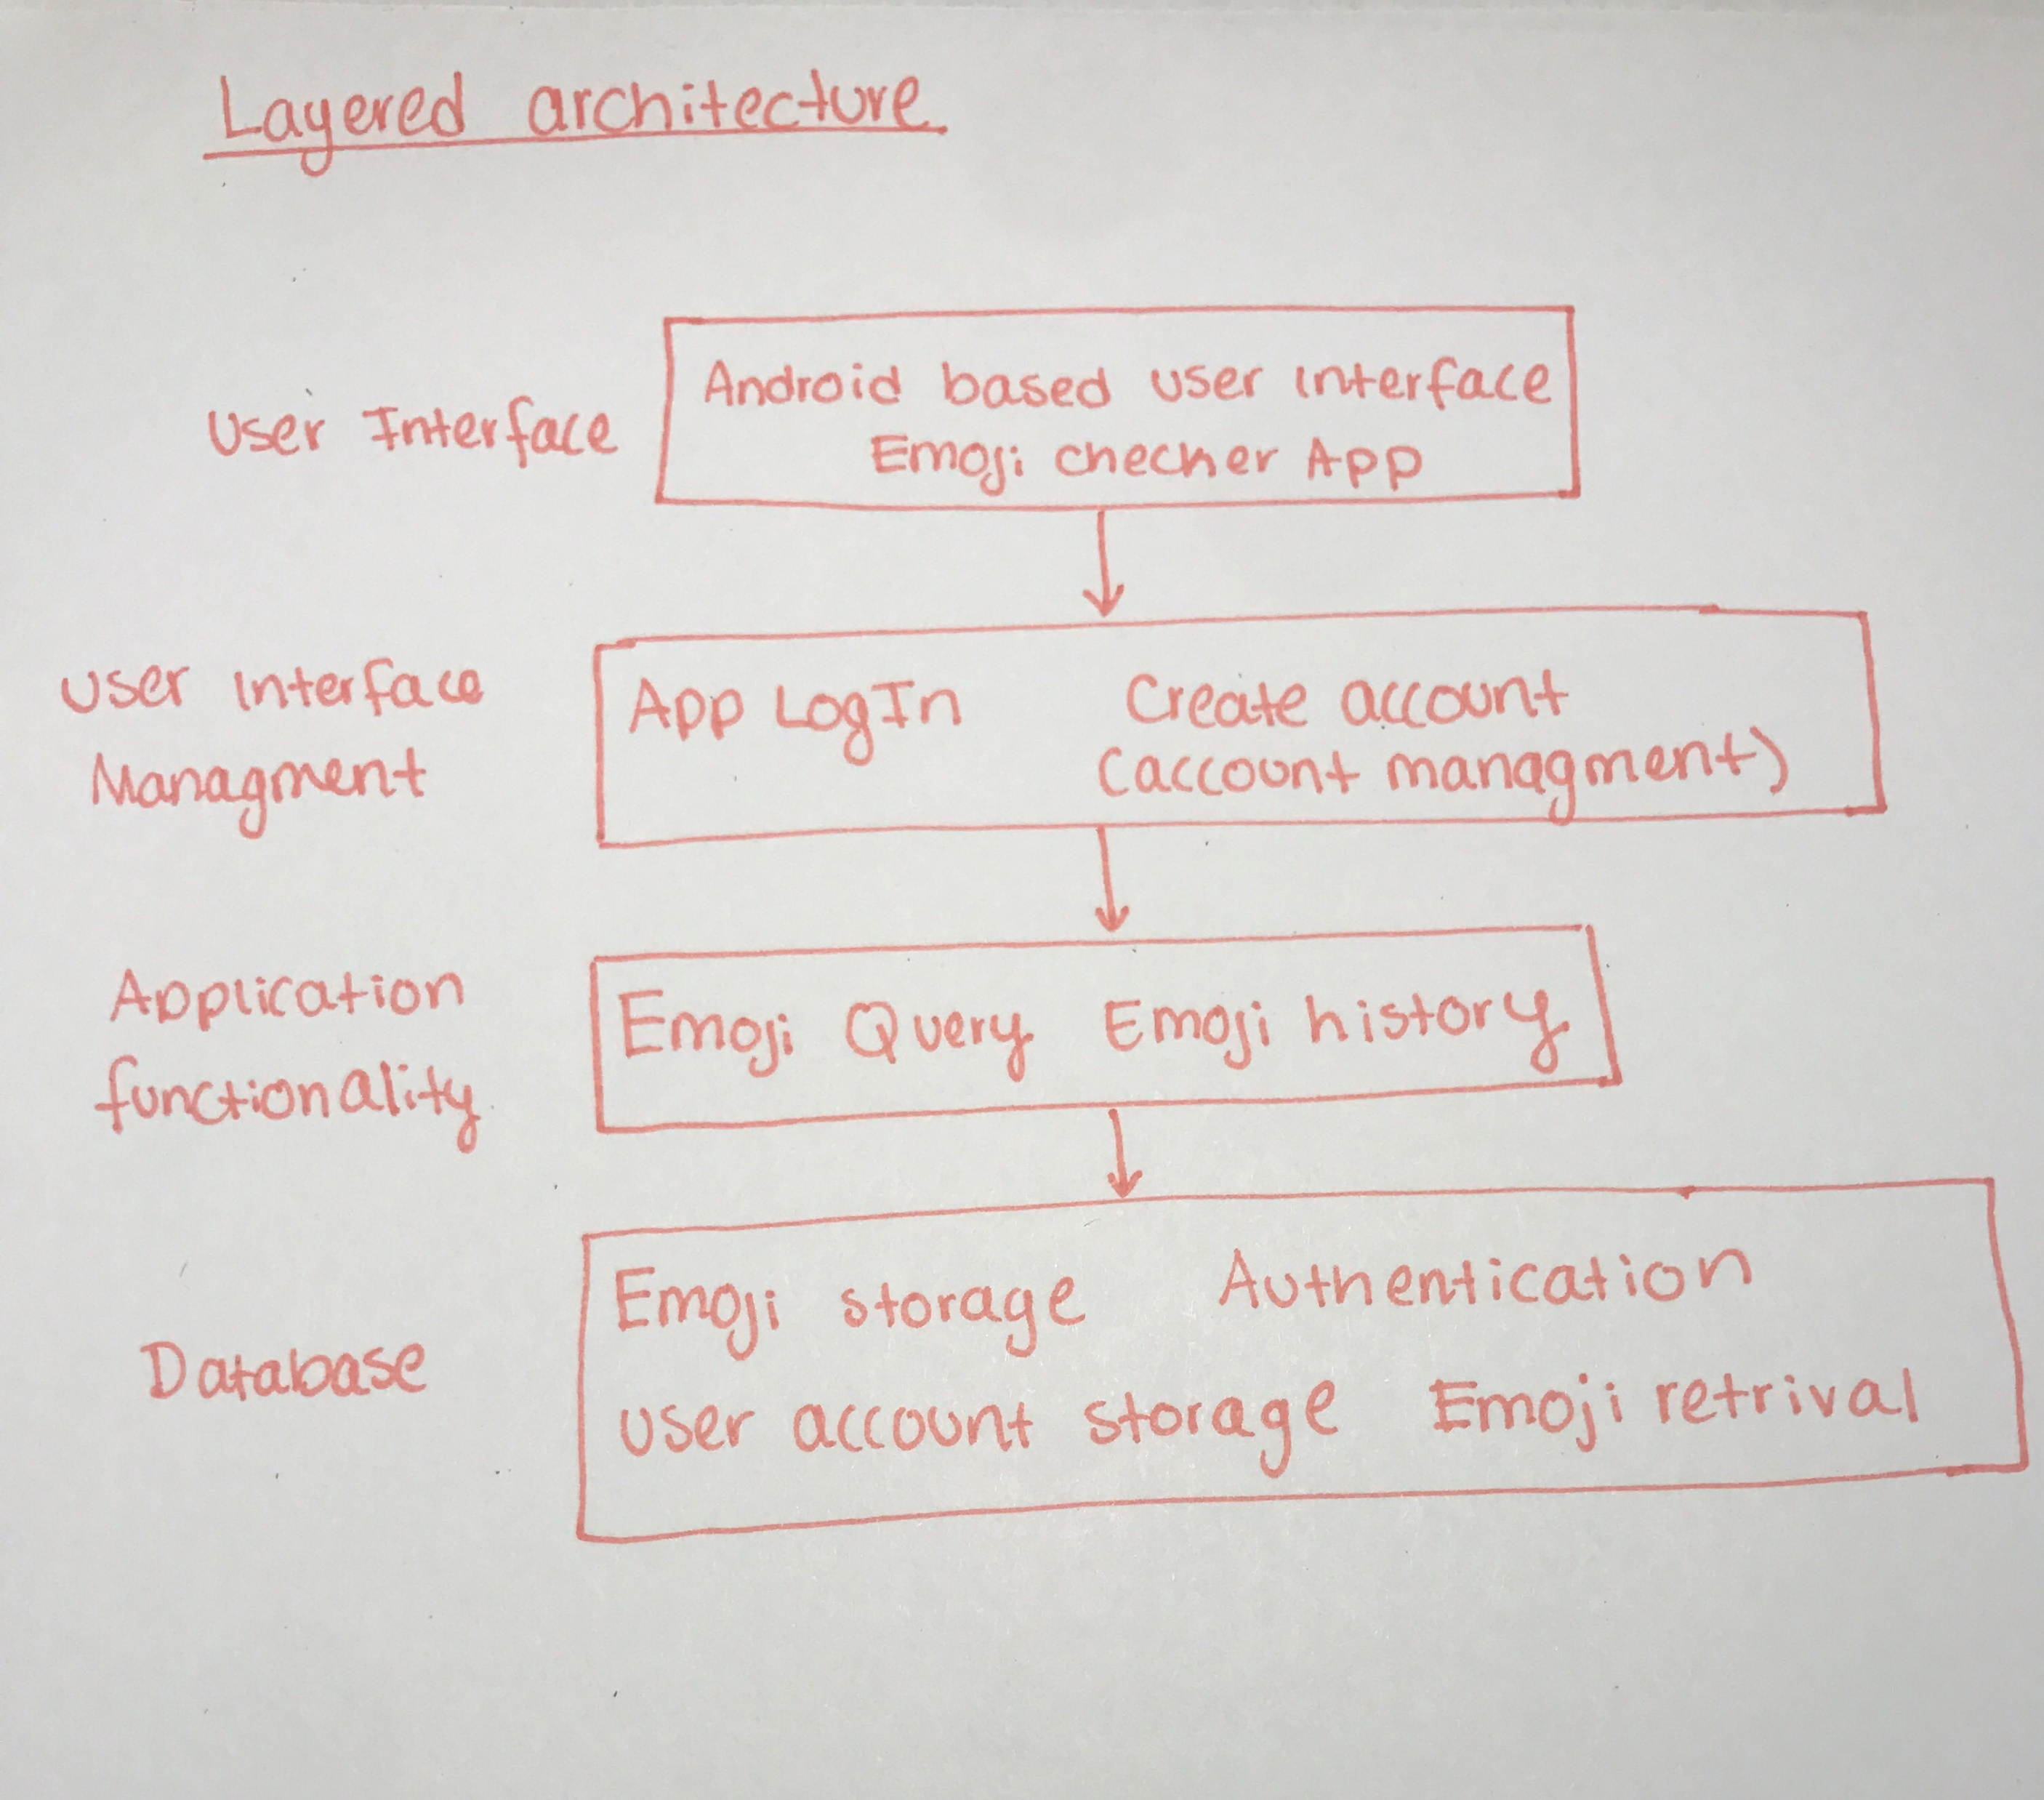 Layered architecture
User Interface
Android based user interface
Emoji checker App
User Interface
Managment
App LogIn Create account
(account managment)
Application
functionality
Emoji Query Emoji history
Database
Emoji storage Authentication
user account storage Emoji retrival